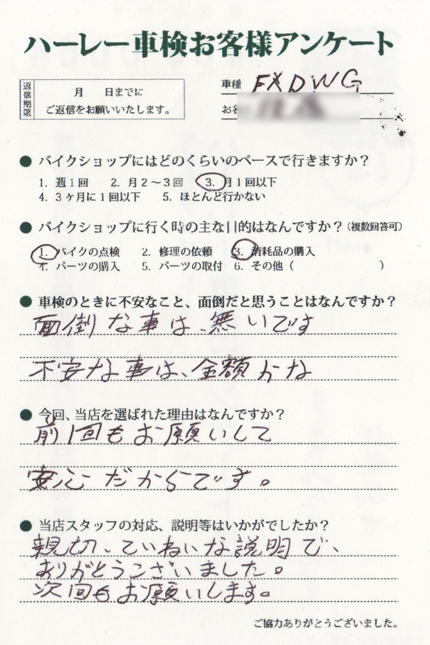 ハーレー車検お客様アンケート
返信期限
月 日までに
ご返信をお願いいたします。
車種 FXDWG
お名
● バイクショップにはどのくらいのペースで行きますか?
1. 週1回 2. 月2~3回 3. 月1回以下
4. 3ヶ月に1回以下 5. ほとんど行かない
● バイクショップに行く時の主な目的はなんですか?(複数回答可)
1. バイクの点検 2. 修理の依頼 3. 消耗品の購入
4. パーツの購入 5. パーツの取付 6. その他( )
● 車検のときに不安なこと、面倒だと思うことはなんですか?
面倒な事は、無いです
不安な事は、金額かな
● 今回、当店を選ばれた理由はなんですか?
前回もお願いして
安心だからです。
● 当店スタッフの対応、説明等はいかがでしたか?
親切、ていねいな説明で、
ありがとうございました。
次回もお願いします。
ご協力ありがとうございました。